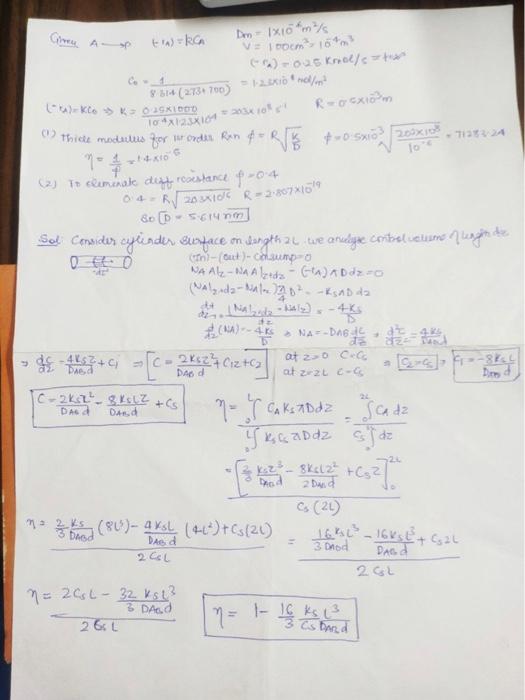 Given A → P (-rA) = kCA Dm = 1×10⁻⁶ m²/s
V = 100cm³ = 10⁻⁴ m³
(-rA) = 0.25 Kmol/s
C₀ = 1 / 8.314 (273+700) = 1.23×10⁻⁴ mol/m³
(-rA) = KC₀ ⇒ K = 0.25×1000 / 10⁻⁴×1.23×10⁻⁴ = 203×10⁸ s⁻¹ R = 0.5×10⁻³m
(1) Thiele modulus for 1st order Rxn ϕ = R√(K/D) ϕ = 0.5×10⁻³ √(203×10⁸ / 10⁻⁶) = 71283.24
η = 1/ϕ = 1.4×10⁻⁵
(2) To eliminate diff resistance ϕ = 0.4
0.4 = R√203×10¹⁶ R = 2.807×10⁻¹⁹
So D = 5.614 nm
Sol: Consider cylinder surface on length 2L. we analyse control volume of length dz
(In) - (out) - Consump = 0
NA A|z - NA A|z+dz - (-rA) π D dz = 0
(NA|z+dz - NA|z) π/4 D² = -KsπD dz
(NA|z+dz - NA|z) / dz = -4Ks / D
d/dz (NA) = -4Ks / D ⇒ NA = -DAB dc/dz, d²c/dz² = 4Ks / DAB d
⇒ dc/dz = 4Ksz / DAB d + C₁ ⇒ C = 2Ksz² / DAB d + C₁z + C₂ at z=0 C=Cs at z=2L C=Cs ⇒ C₂=Cs, C₁ = -8KsL / DAB d
C = 2Ksz² / DAB d - 8KsLz / DAB d + Cs η = ∫₀ᴸ CA Ks π D dz / ∫₀ᴸ Ks Cs π D dz = ∫₀²ᴸ CA dz / Cs ∫₀²ᴸ dz
= [2/3 Ksz³ / DAB d - 8KsLz² / 2DAB d + Csz]₀²ᴸ / Cs (2L)
η = 2/3 Ks / DAB d (8L³) - 4KsL / DAB d (4L²) + Cs(2L) / 2CsL = 16KsL³ / 3DAB d - 16KsL³ / DAB d + Cs2L / 2CsL
η = 2CsL - 32/3 KsL³ / DAB d / 2CsL η = 1 - 16/3 KsL³ / Cs DAB d